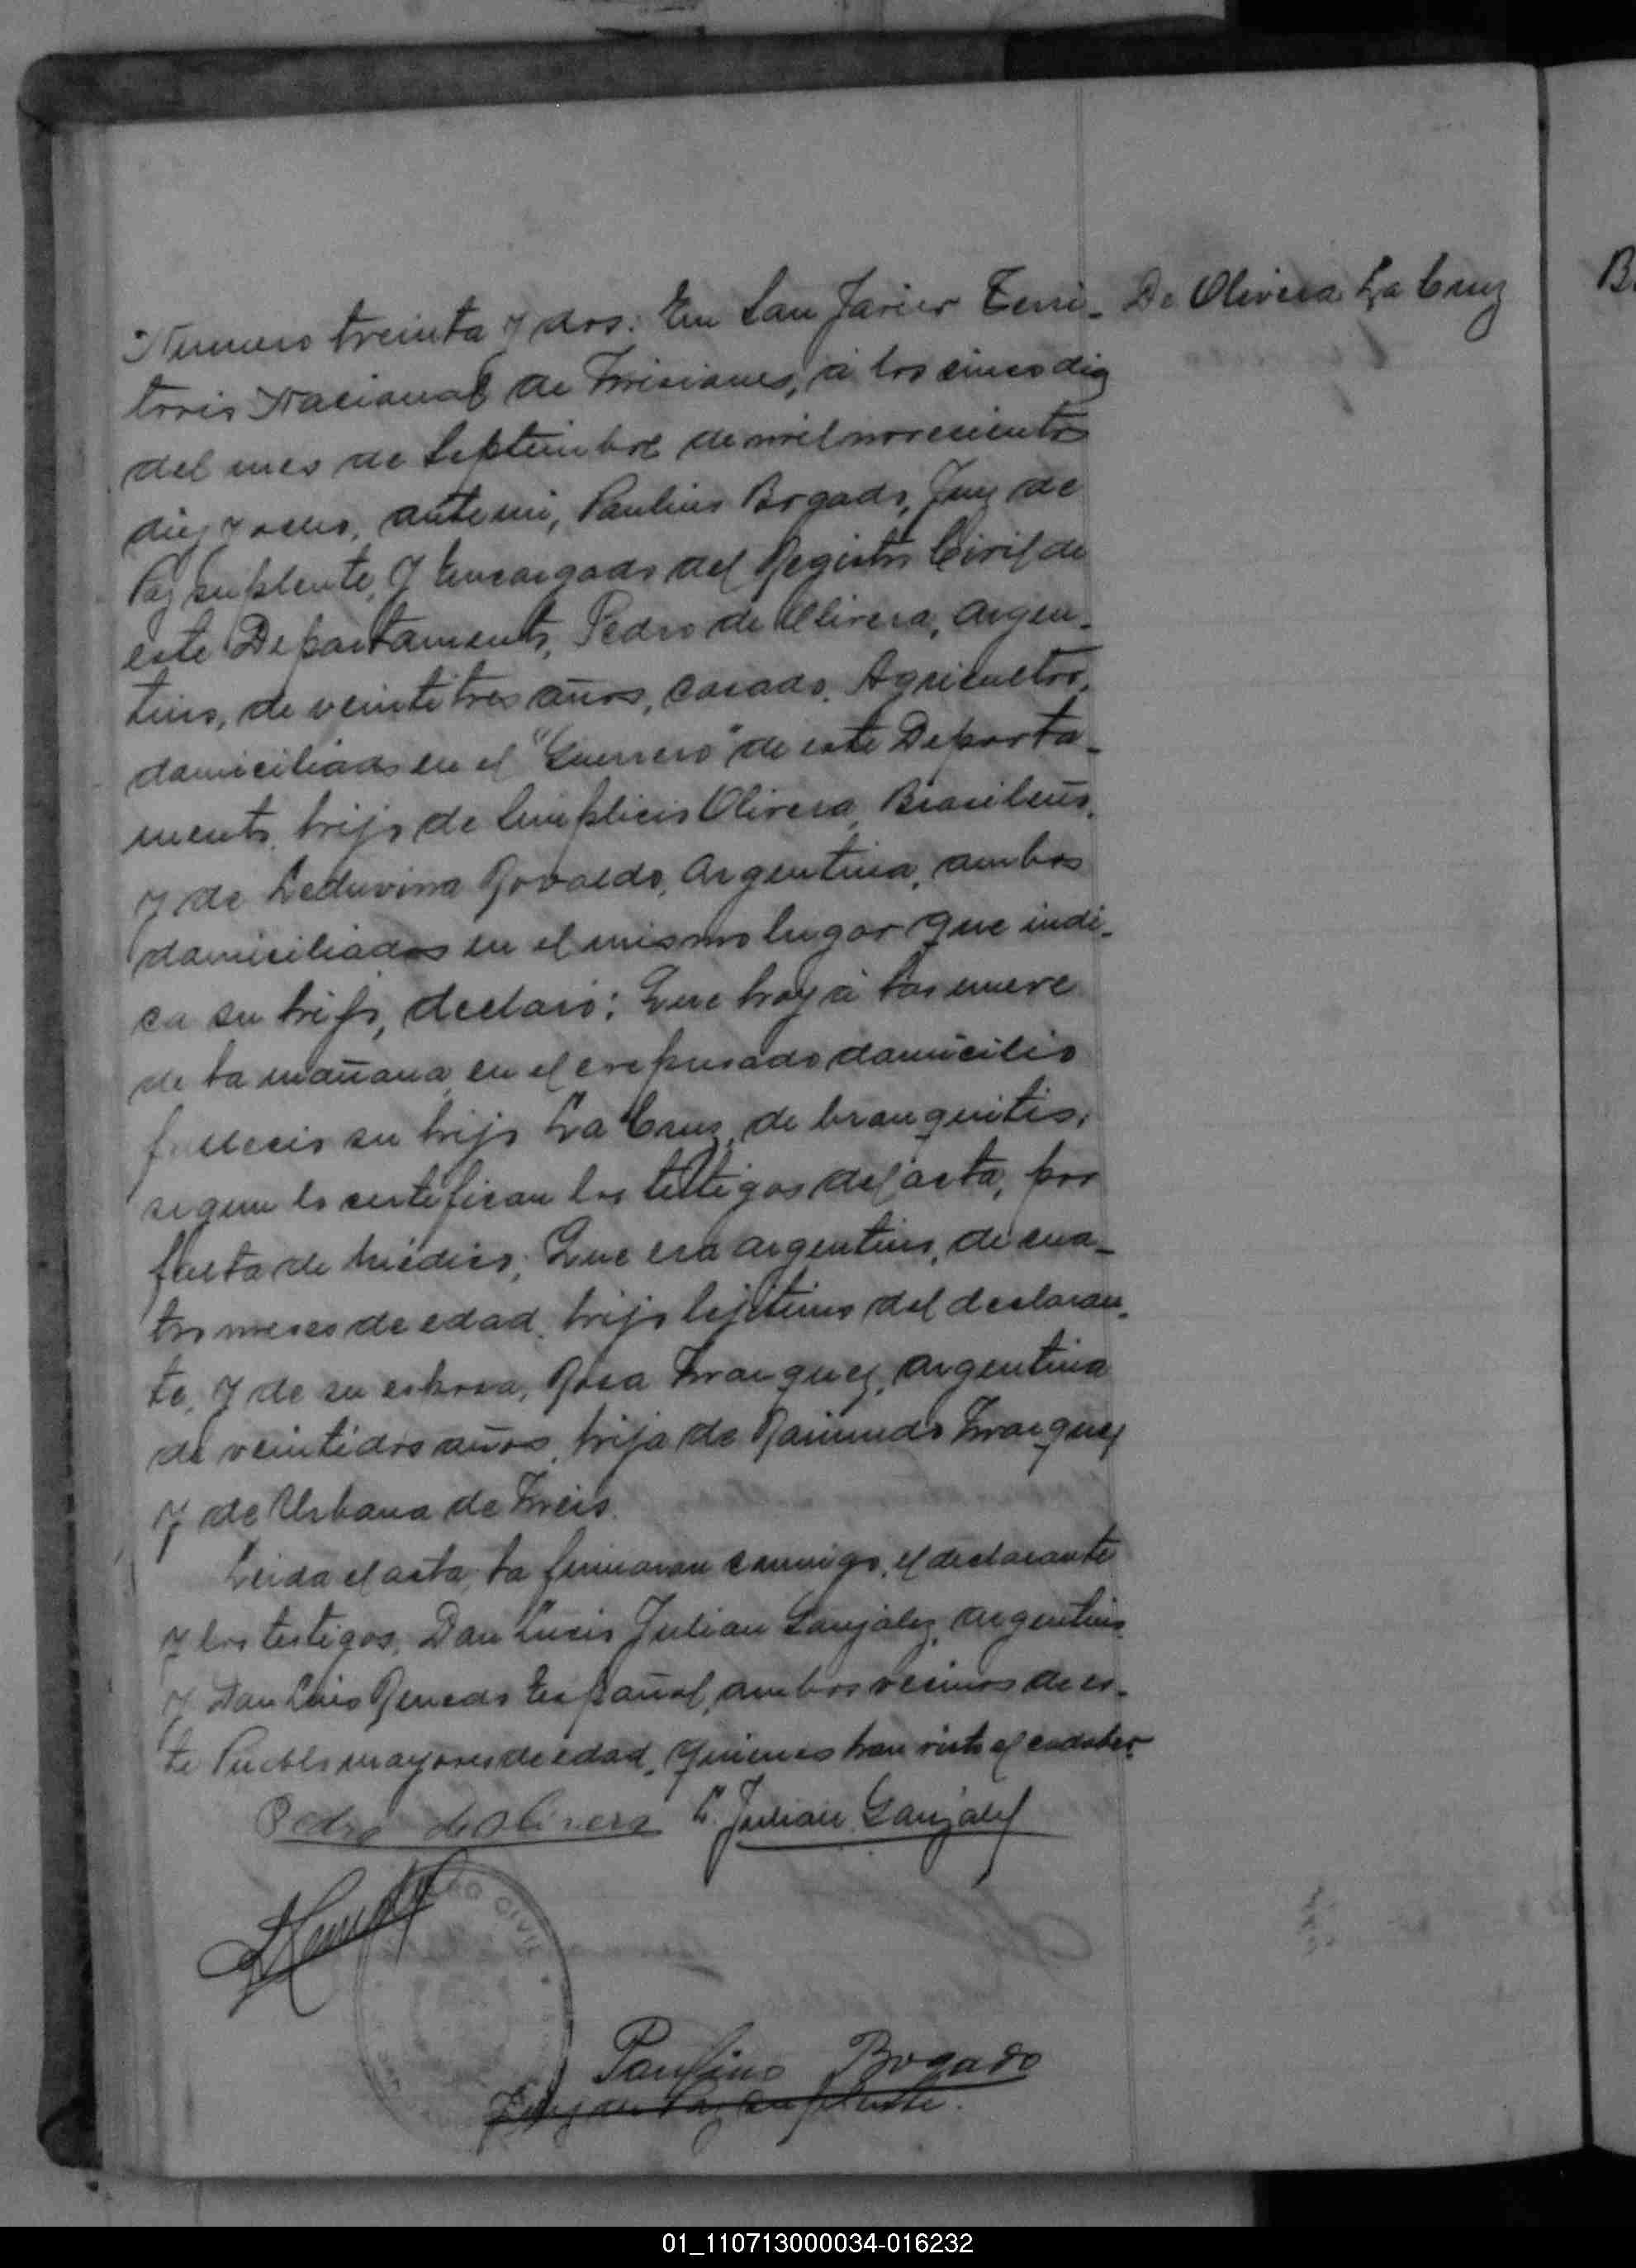 Numero treinta y dos. En San Javier Terri- De Olivera La Cruz
torio Nacional de Misiones, á los cinco dia
del mes de Septiembre de mil novecientos
diez y ocho, ante mi, Paulino Bogado, Juez de
Paz suplente, y Encargado del Registro Civil de
este Departamento, Pedro de Olivera, argen-
tino, de veintitres años, casado, Agricultor,
domiciliado en el "Guerrero" de este Departa-
mento, hijo de Simplicio Olivera, Brasileño,
y de Leduvina Argentina, ambos
domiciliados en el mismo lugar que indi-
ca su hijo, declaró: Que hoy á las nueve
de la mañana, en el expresado domicilio
fallecio su hijo La Cruz, de bronquitis,
segun lo certifican los testigos del acta, por
falta de médico; Que era argentino, de cua-
tro meses de edad, hijo lejitimo del declaran-
te, y de su esposa, Rosa Marquez, argentina
de veintidos años, hija de Raimundo Marquez
y de Urbana de Melo.
Leida el acta, la firmaron conmigo, el declarante
y los testigos, Don Lucio Julian Gonzalez, argentino
y Don Luis Español, ambos vecinos de es-
te Pueblo mayores de edad, quienes han visto el cadaber.
Pedro de Olivera L. Julian Gonzalez
Paulino Bogado
Juez de Paz Suplente.
B.
01_110713000034-016232